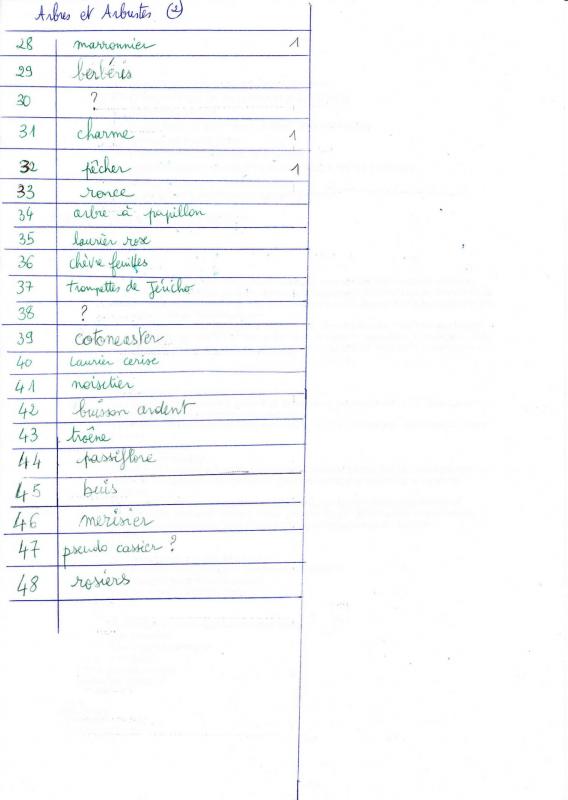 Arbres et Arbustes ②
28 marronnier 1
29 berbéris
30 ?
31 charme 1
32 pêcher 1
33 ronce
34 arbre à papillon
35 laurier rose
36 chèvre feuilles
37 trompettes de Jéricho
38 ?
39 cotoneaster
40 laurier cerise
41 noisetier
42 buisson ardent
43 troène
44 passiflore
45 buis
46 merisier
47 pseudo cassier ?
48 rosiers